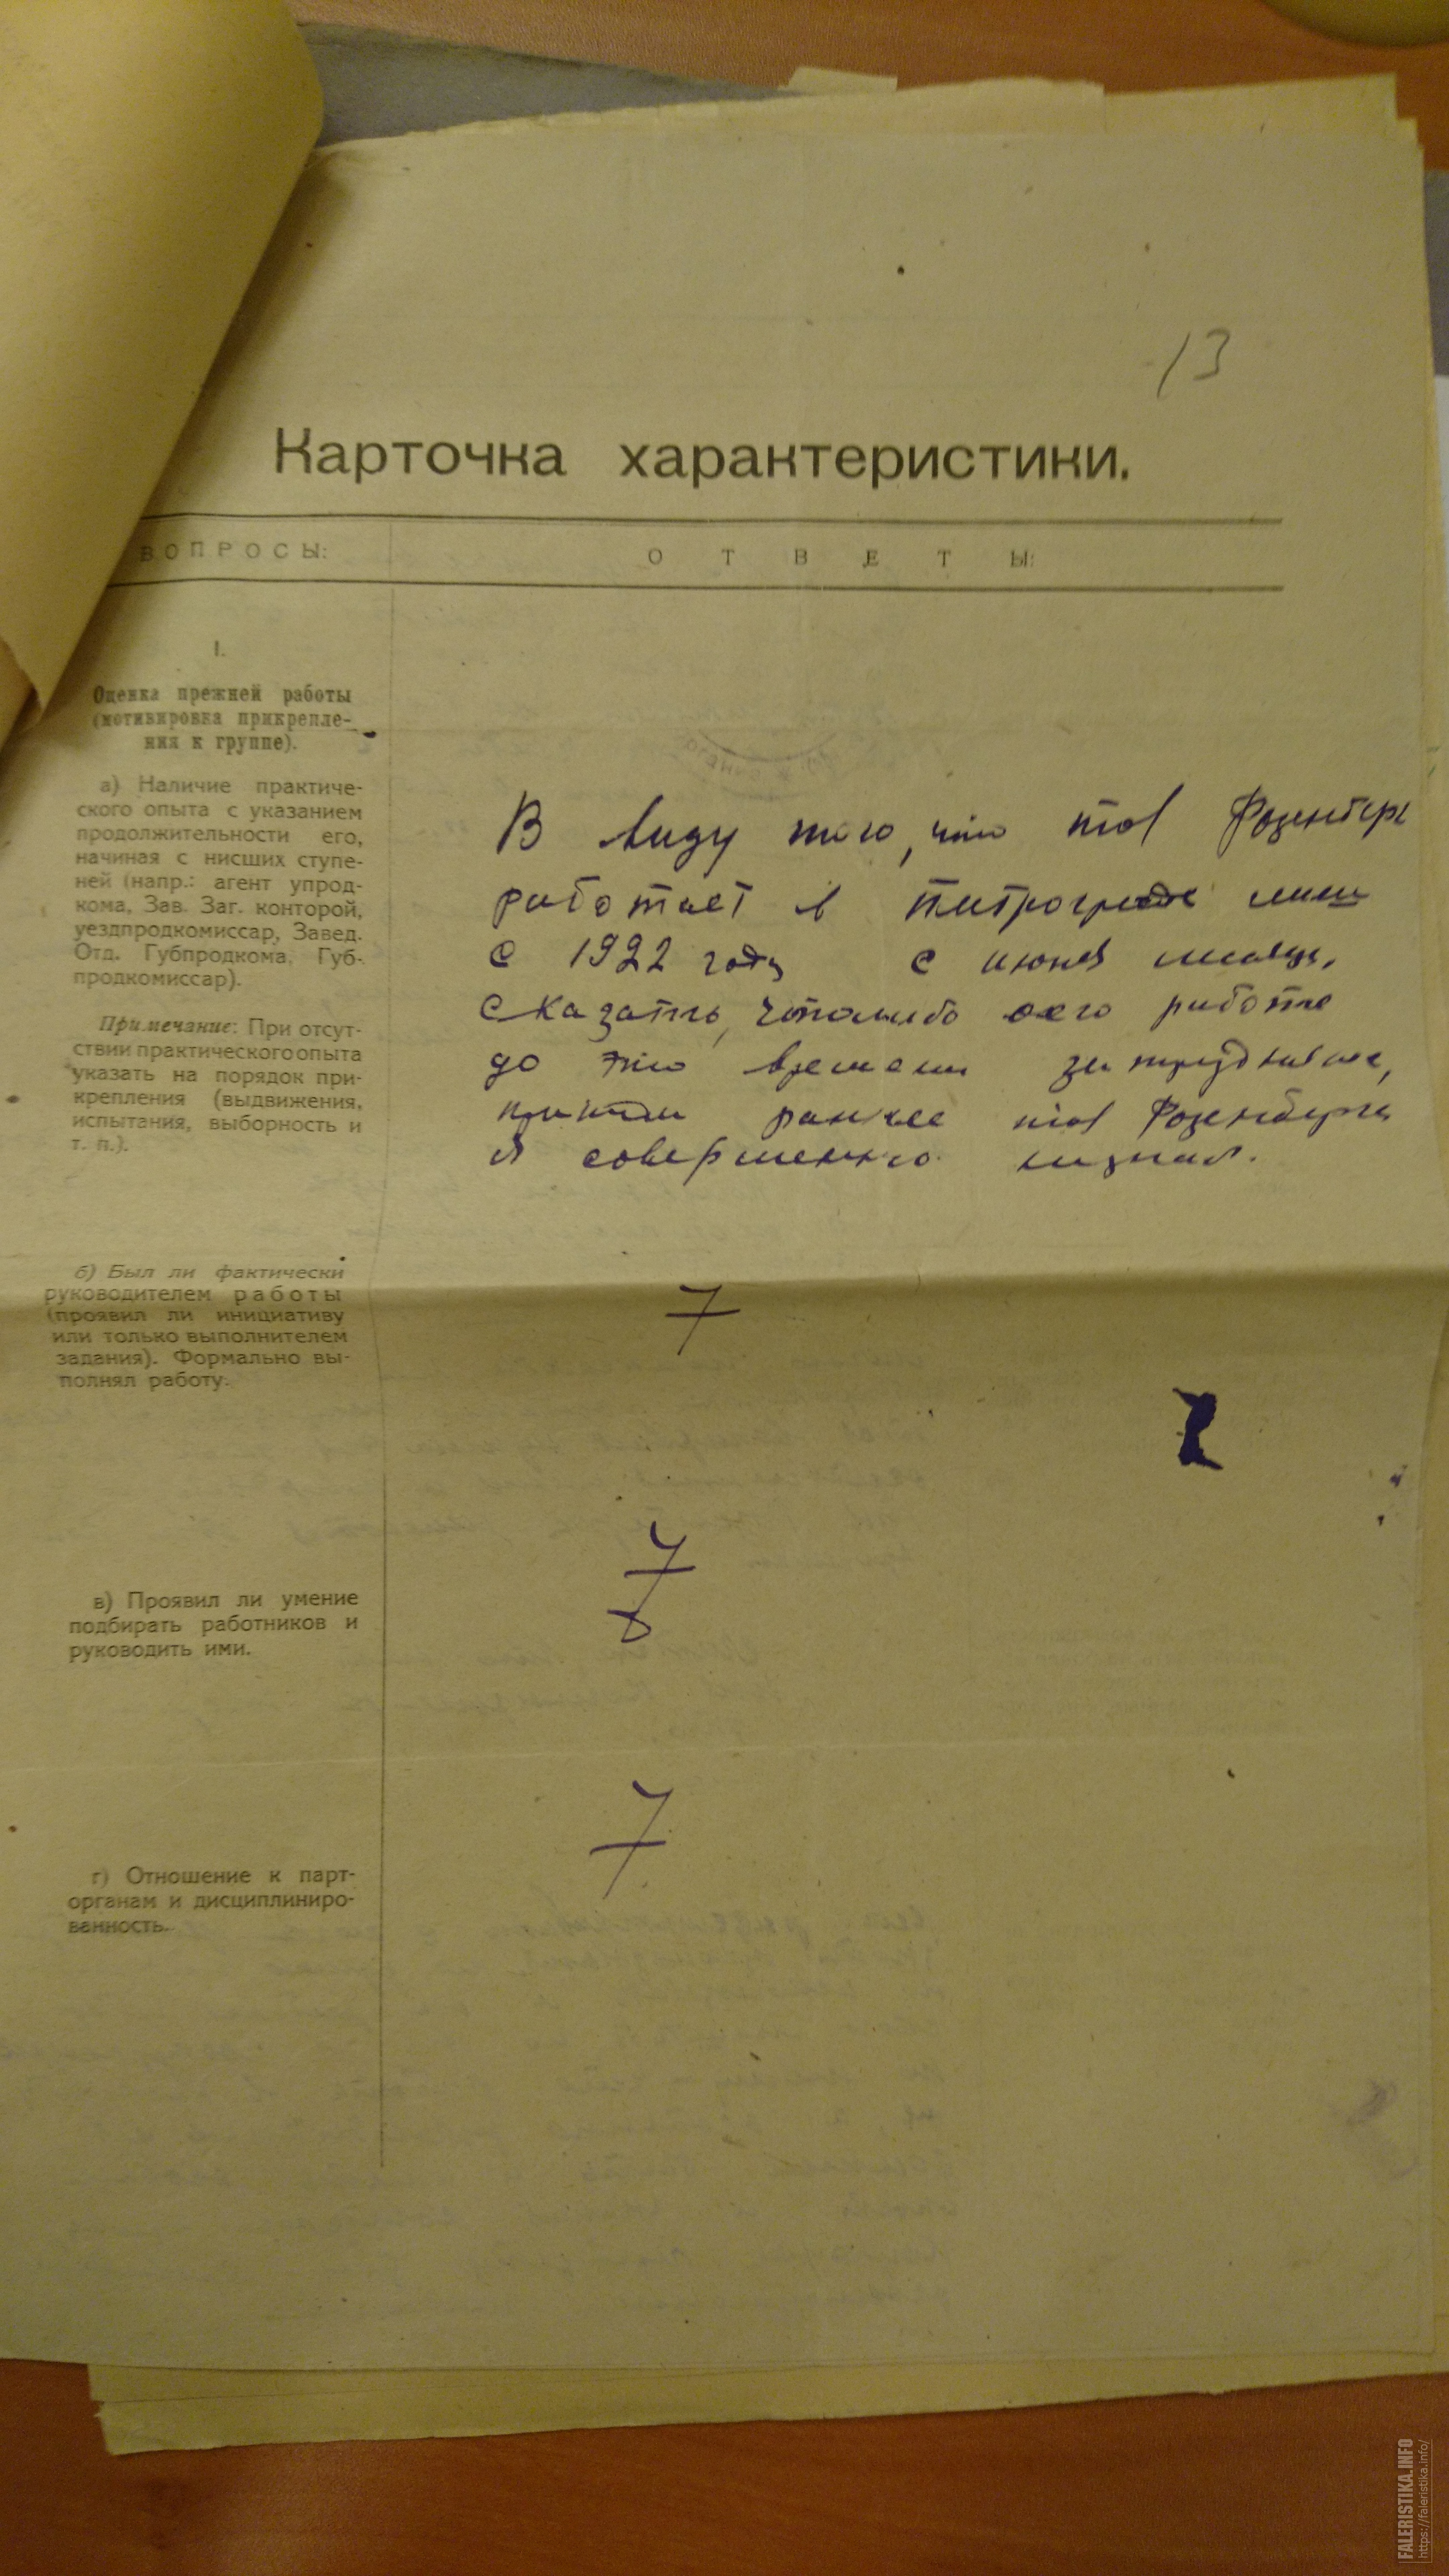 13
Карточка характеристики.
ВОПРОСЫ:
ОТВЕТЫ:
I.
Оценка прежней работы
(мотивировка прикрепле-
ния к группе).
а) Наличие практиче-
ского опыта с указанием
продолжительности его,
начиная с нисших ступе-
ней (напр.: агент упрод-
кома, Зав. Заг. конторой,
уездпродкомиссар, Завед.
Отд. Губпродкома, Губ-
продкомиссар).
Примечание: При отсут-
ствии практического опыта
указать на порядок при-
крепления (выдвижения,
испытания, выборность и
т. п.).
В виду того, что тов Розенберг
работает в Петрограде лишь
с 1922 году с июня месяца,
сказать, чтолибо о его работе
до это времени затрудняюсь,
ранее тов Розенберга
я совершенно незнал.
б) Был ли фактически
руководителем работы
(проявил ли инициативу
или только выполнителем
задания). Формально вы-
полнял работу.
7
в) Проявил ли умение
подбирать работников и
руководить ими.
7
г) Отношение к парт-
органам и дисциплиниро-
ванность.
7
FALERISTIKA.INFO
https://faleristika.info/